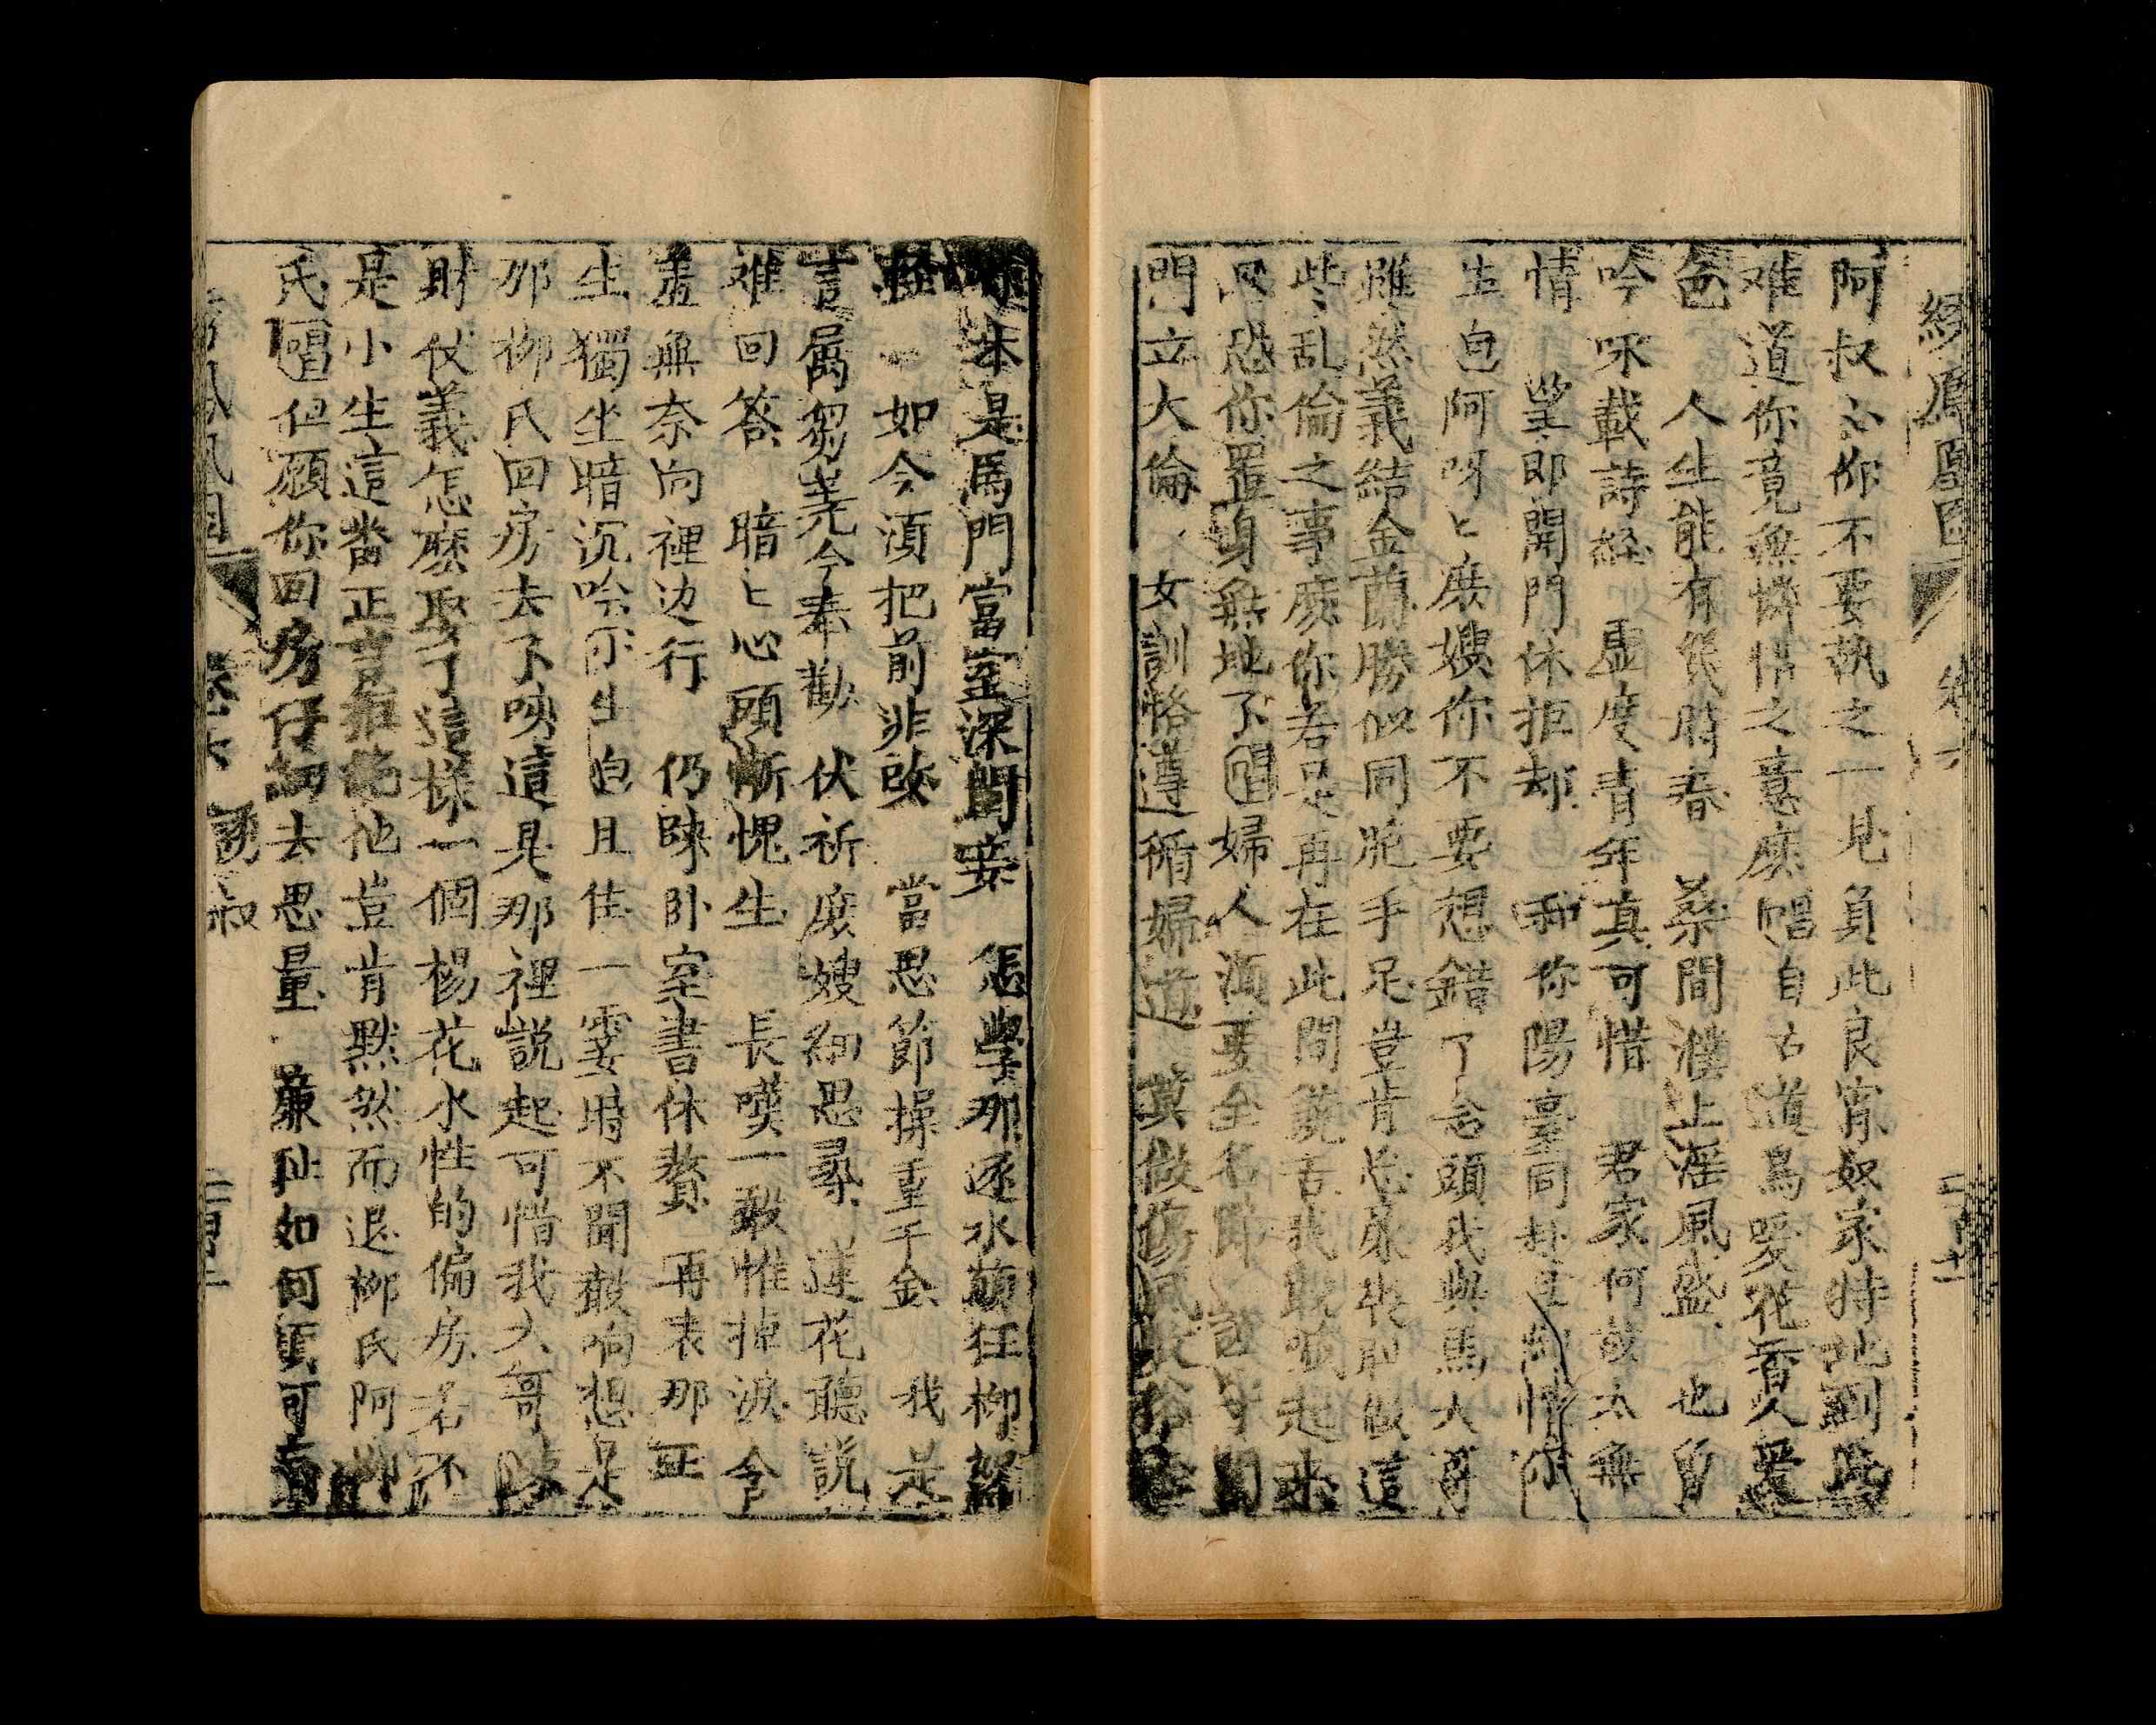 綉鳳凰图 卷六
阿叔々你不要执之一見負此良宵奴家特地到此
难道你竟無憐惜之意庅唱自古道鳥愛花香人愛
色 人生能有幾時春 桑間濮上淫風盛 也曾
吟咏載詩經 虚度青年真可惜 君家何故太無
情 望即開門休拒却 和你陽臺同赴 情你
生白阿呀匕庅嫂你不要想錯了念頭我與馬大哥
雖然義結金蘭勝似同胞手足豈肯 做這
些乱倫之事庅你若是再在此間 言我 喊起來
只恐你置身無地了唱婦人須要全名節
門立大倫 女訓恪遵循婦道 莫做傷風敗俗
你本是馬門富室深閨妾 怎學那逐水 狂柳絮
輕 如今須把前非改 當思節操重千金 我是
言属芻蕘今奉勸 伏祈庅嫂細思尋 蓮花聽説
难回答 暗匕心頭慚愧生 長嘆一聲惟掉淚 含
羞無奈向裡边行 仍睐卧室書休贅 再表那正
生獨坐暗沉吟 生白且住一霎時不聞聲响想是
那柳氏回房去了唉這是那裡説起可惜我大哥
財仗義怎庅娶了這樣一個楊花水性的偏房若不
是小生這畨正言拒絶他豈肯默然而退柳氏阿柳
氏唱但願你回房仔細去思量 亷耻如何
卷六 誘叔